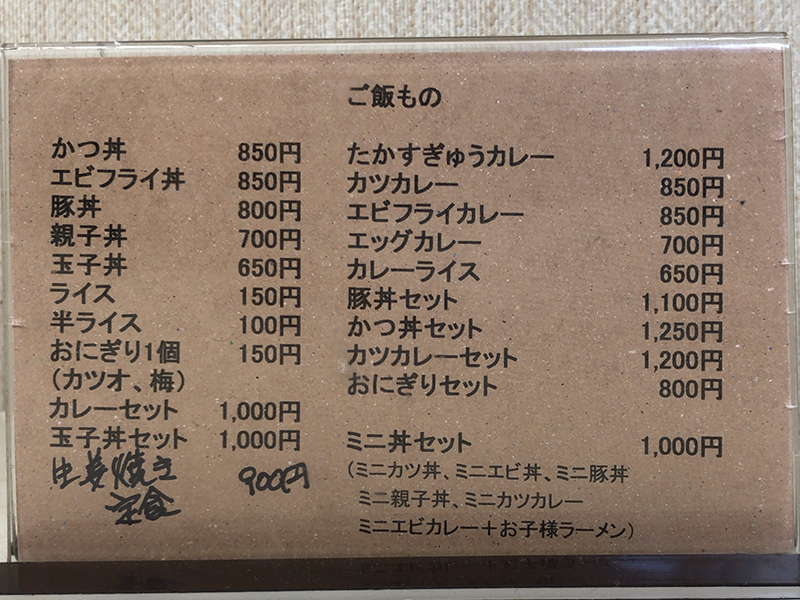 ご飯もの
かつ丼 850円
エビフライ丼 850円
豚丼 800円
親子丼 700円
玉子丼 650円
ライス 150円
半ライス 100円
おにぎり1個 150円
（カツオ、梅）
カレーセット 1,000円
玉子丼セット 1,000円
生姜焼き 900円
定食
たかすぎゅうカレー 1,200円
カツカレー 850円
エビフライカレー 850円
エッグカレー 700円
カレーライス 650円
豚丼セット 1,100円
かつ丼セット 1,250円
カツカレーセット 1,200円
おにぎりセット 800円
ミニ丼セット 1,000円
（ミニカツ丼、ミニエビ丼、ミニ豚丼
ミニ親子丼、ミニカツカレー
ミニエビカレー＋お子様ラーメン）